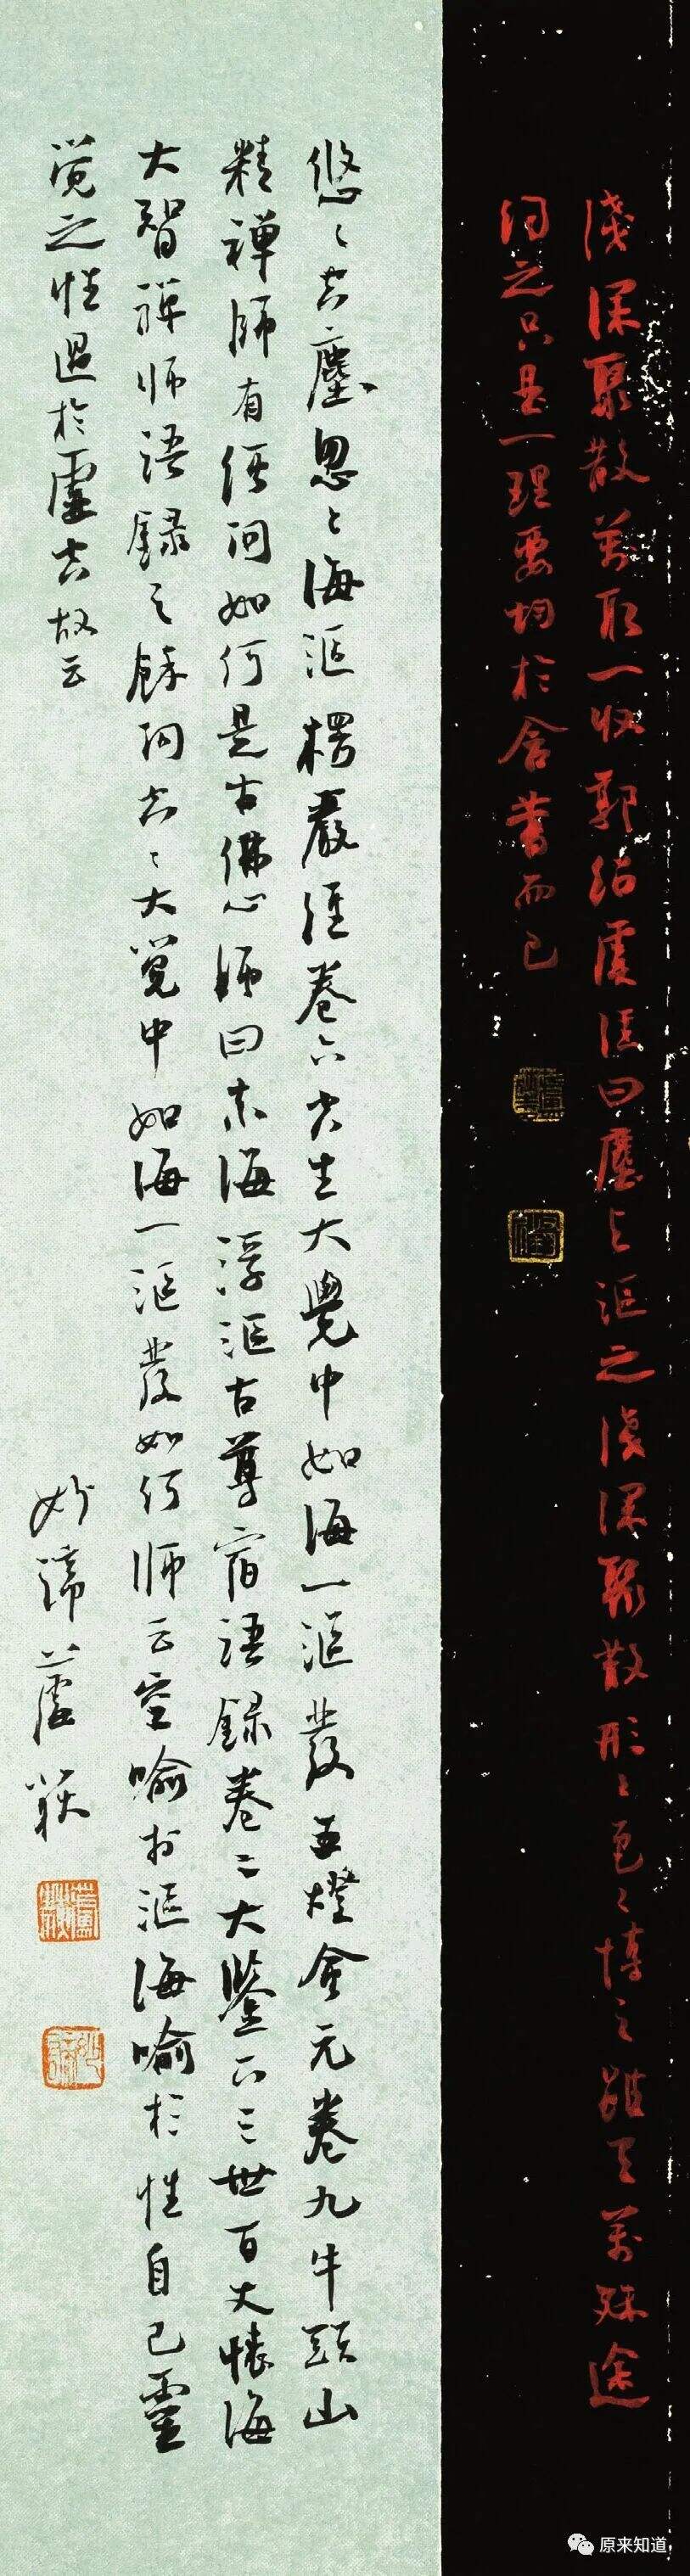 浅深聚散萬取一收郭紹虞注曰塵与漚之淺深聚散形形色色博之雖有萬殊途
約之只是一理要均於含蓄而已
悠悠空塵忽忽海漚楞嚴經卷六空生大覺中如海一漚發五燈會元卷九牛頭山
精禅師有僧问如何是古佛心師曰東海浮漚古尊宿語録卷二大鑒下三世百丈懐海
大智禅师語録之餘问空空大覺中如海一漚發如何师云空喻於漚海喻於性自己靈
覺之性過於虚空故云
妙諦
原来知道